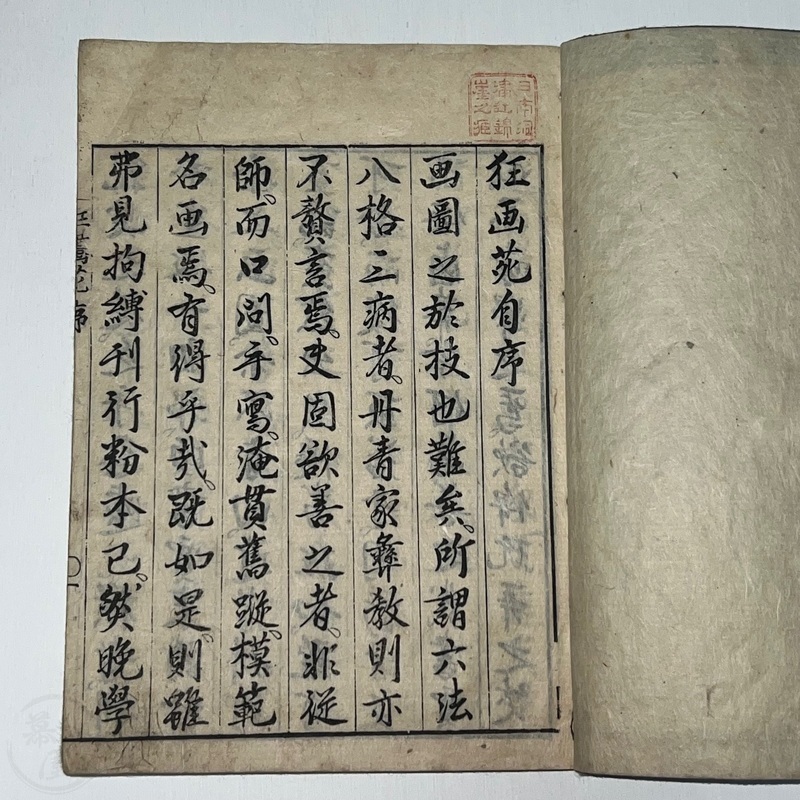 狂画苑自序
画圖之於技也難矣。所謂六法
八格三病者。丹青家彝教則亦
不贅言焉。夫固欲善之者。非従
師。而口問。手寫。淹貫舊蹤。模範
名画焉。有得乎哉。既如是。則雖
弗見拘縛刊行粉本已。然晩學
序